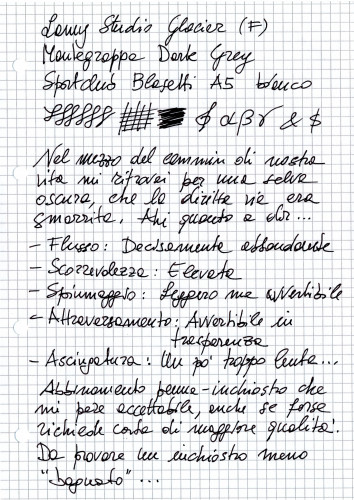 Lamy Studio Glacier (F)
Montegrappa Dark Grey
Sportclub Blasetti A5 bianco
αβγ & $
Nel mezzo del cammin di nostra
vita mi ritrovai per una selva
oscura, che la diritta via era
smarrita. Ahi quanto a dir...
- Flusso: Decisamente abbondante
- Scorrevolezza: Elevata
- Spiumaggio: Leggero ma avvertibile
- Attraversamento: Avvertibile in
trasparenza
- Asciugatura: Un po' troppo lenta...
Abbinamento penna-inchiostro che
mi pare accettabile, anche se forse
richiede carta di maggiore qualità.
Da provare un inchiostro meno
"bagnato"...